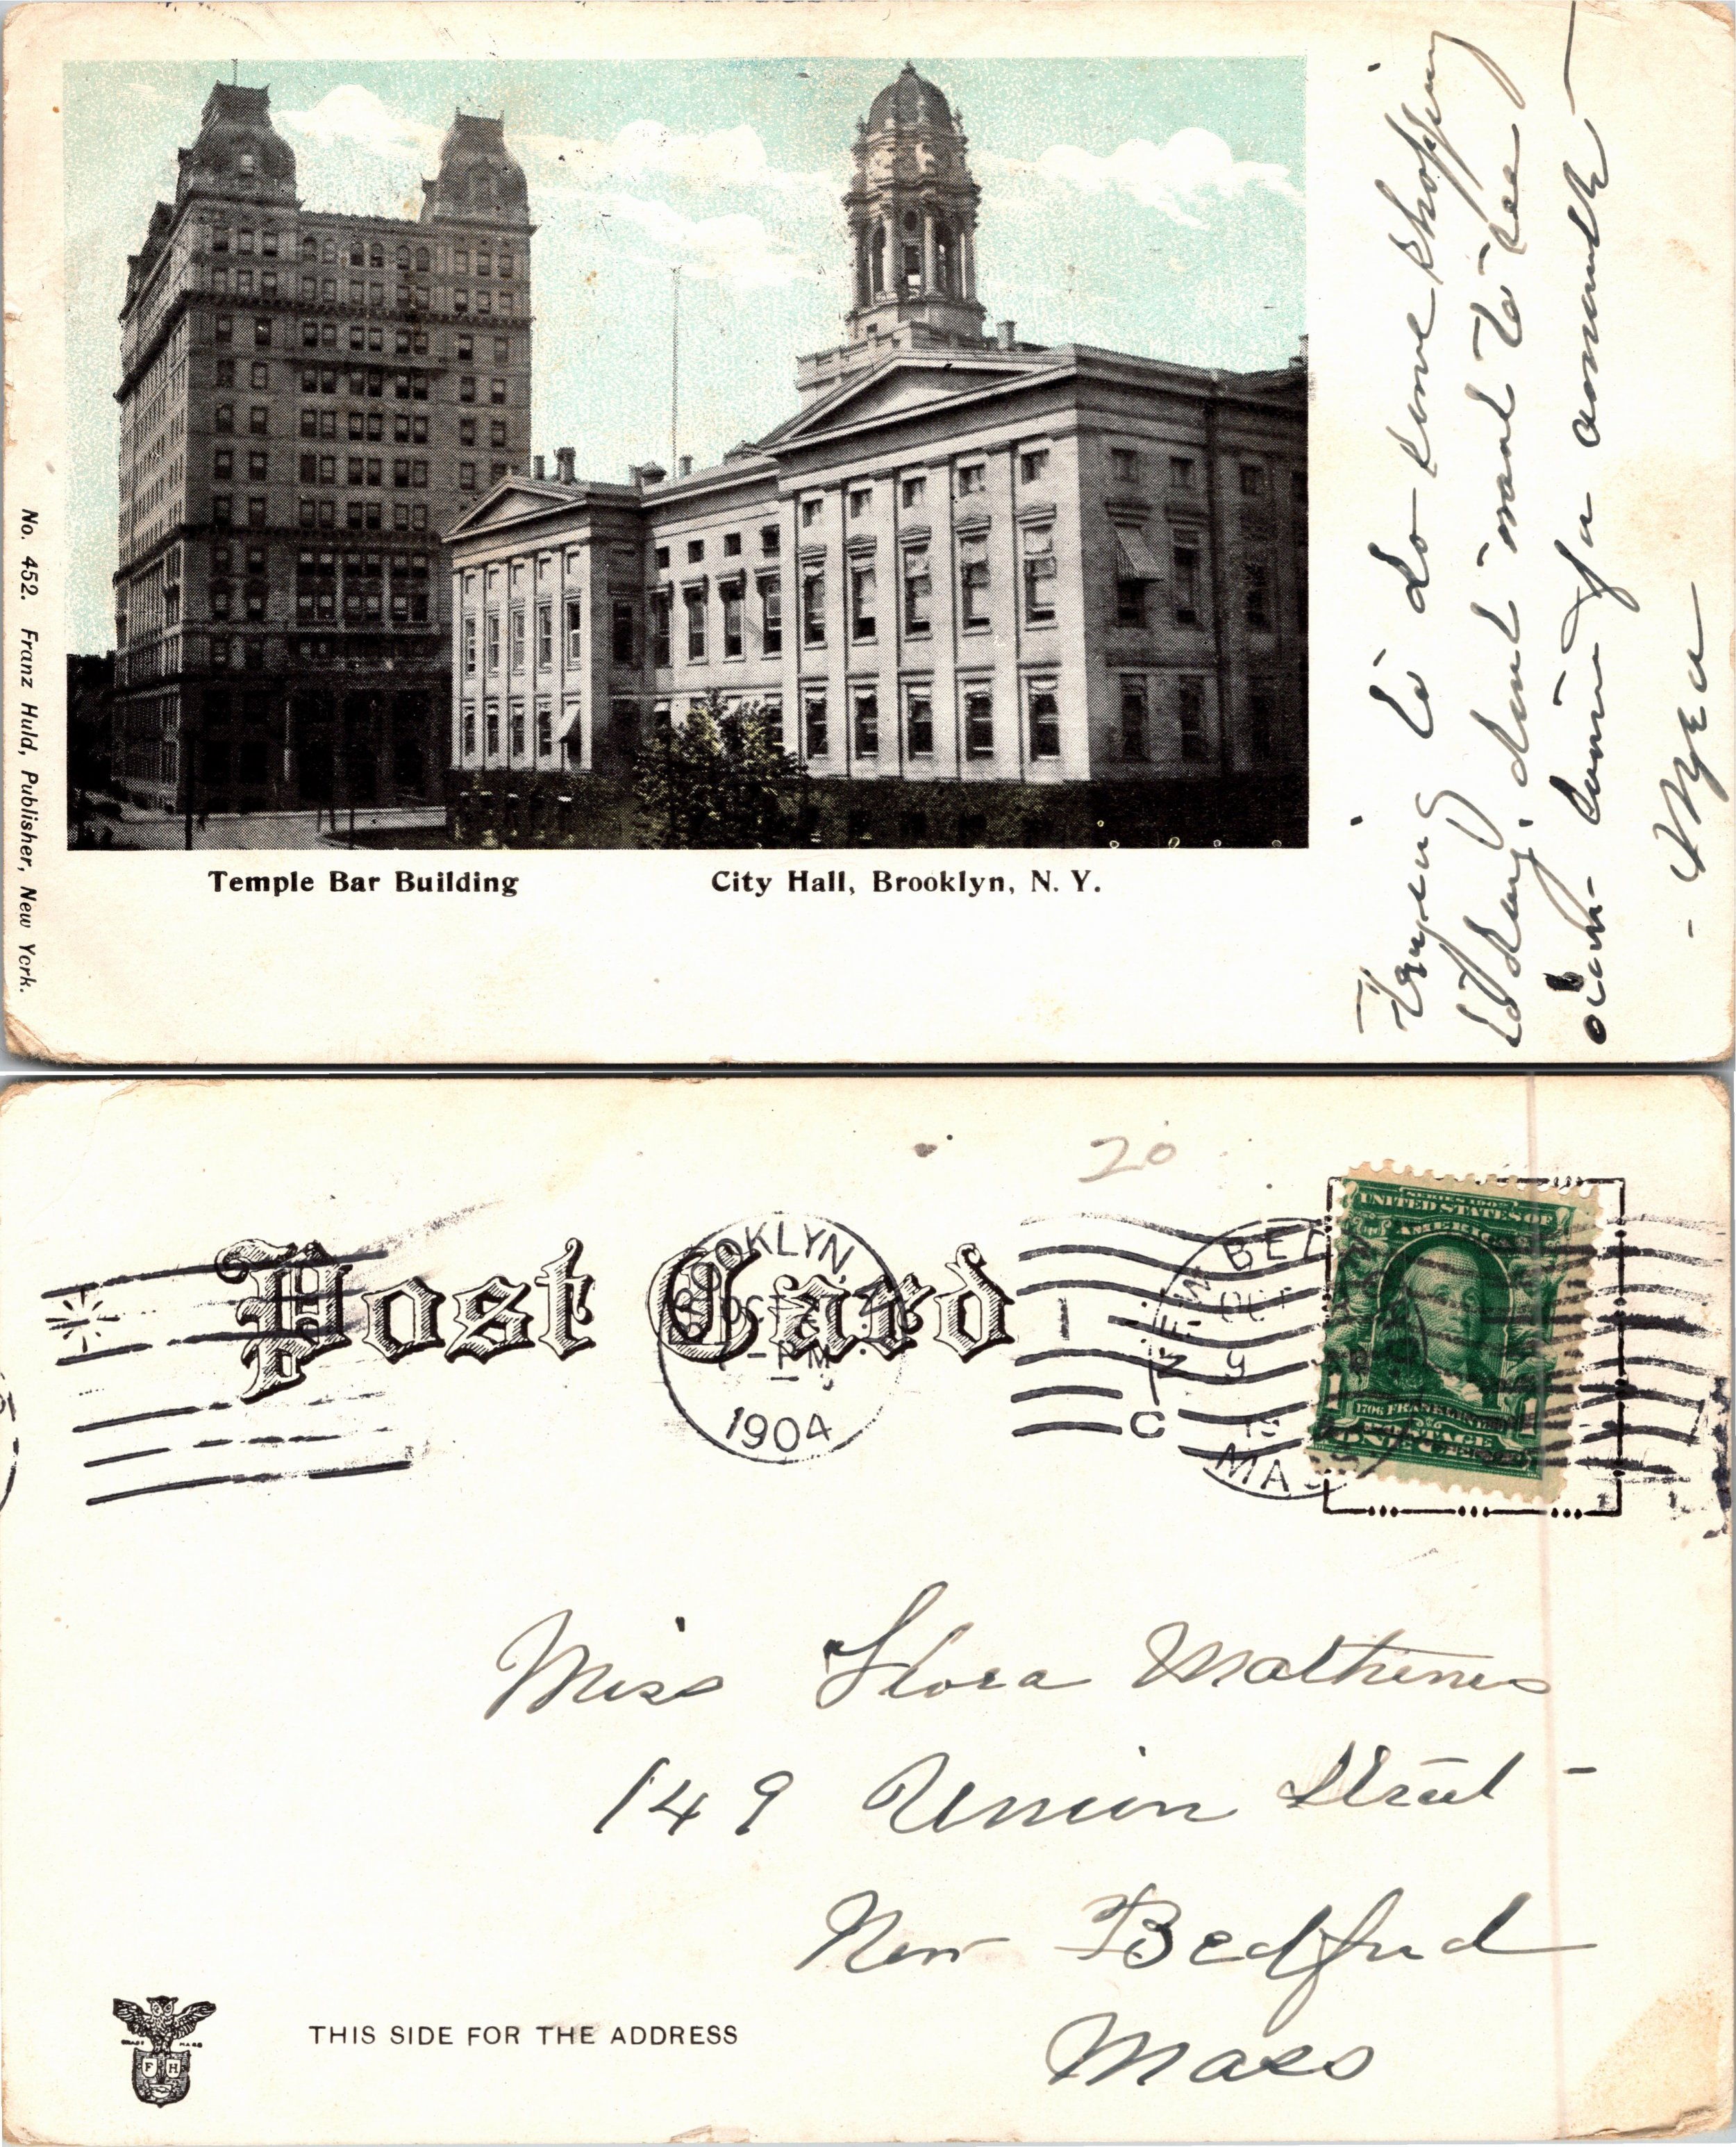 Temple Bar Building
City Hall, Brooklyn, N. Y.
No. 452. Franz Huld, Publisher, New York.
Trying to do some shopping
today. dont want to see
again for a month
Post Card
BROOKLYN, N.Y.
OCT
PM
1904
20
NEW BEDFORD
OCT
9
MASS
C
SERIES 1902
UNITED STATES OF
AMERICA
1706 FRANKLIN 1790
POSTAGE
1 ONE CENT 1
Miss Flora Mathews
149 Union Street -
New Bedford
Mass
TRADE MARK
F H
THIS SIDE FOR THE ADDRESS